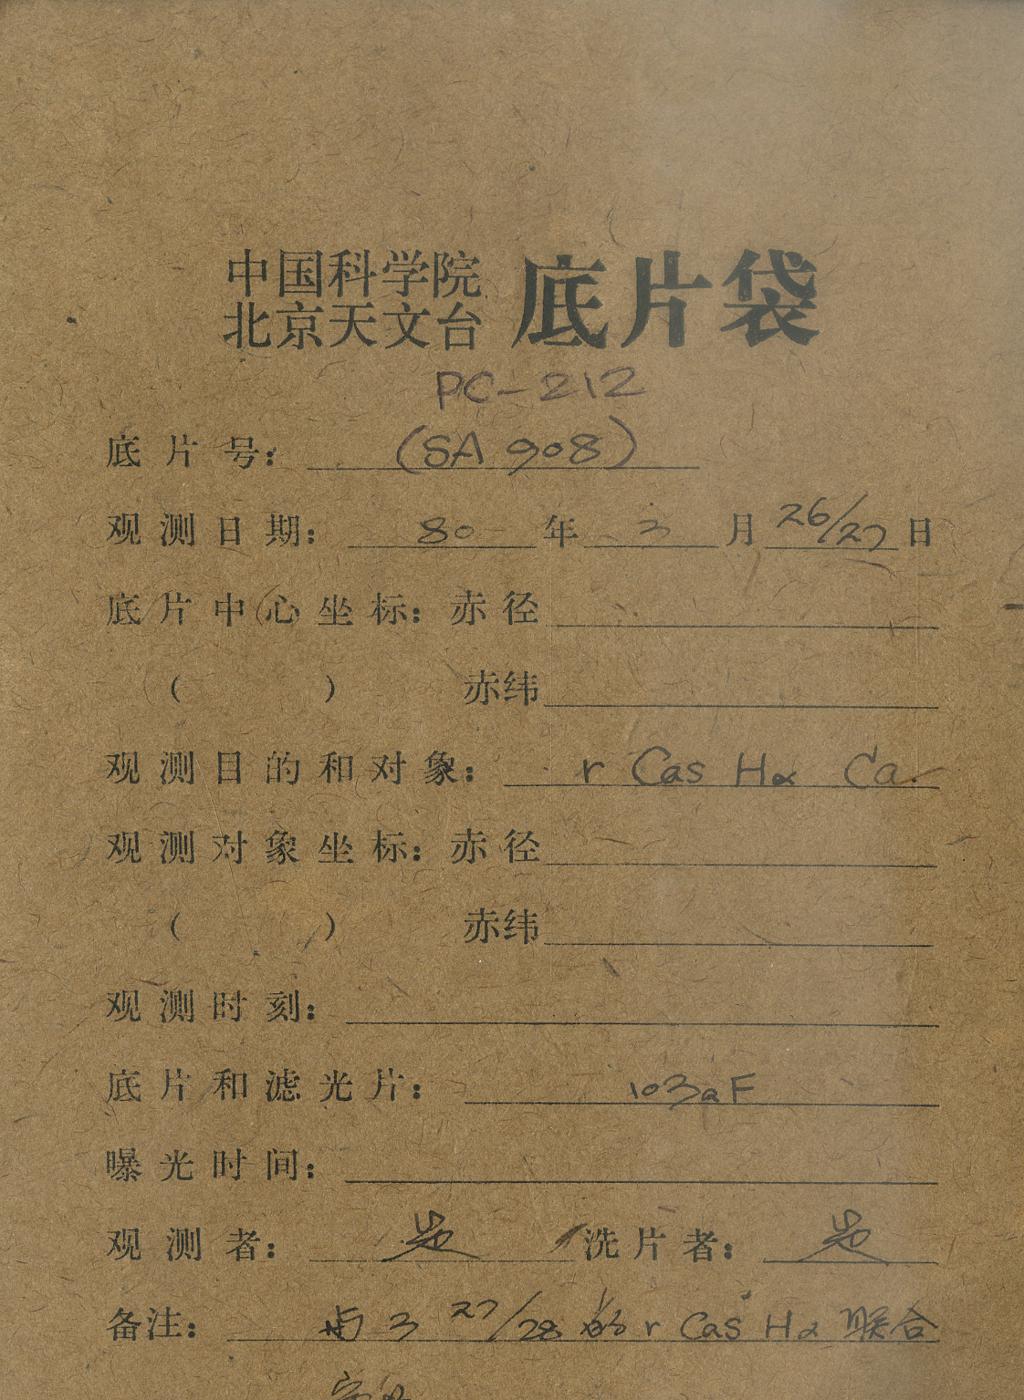 中国科学院
北京天文台 底片袋
PC-212
底片号： (SA 908)
观测日期： 80 年 3 月 26/27 日
底片中心坐标：赤径
（ ） 赤纬
观测目的和对象： r Cas Hα Ca
观测对象坐标：赤径
（ ） 赤纬
观测时刻：
底片和滤光片： 103aF
曝光时间：
观测者： 洗片者：
备注： 3 27/28 的 r Cas Hα 联合